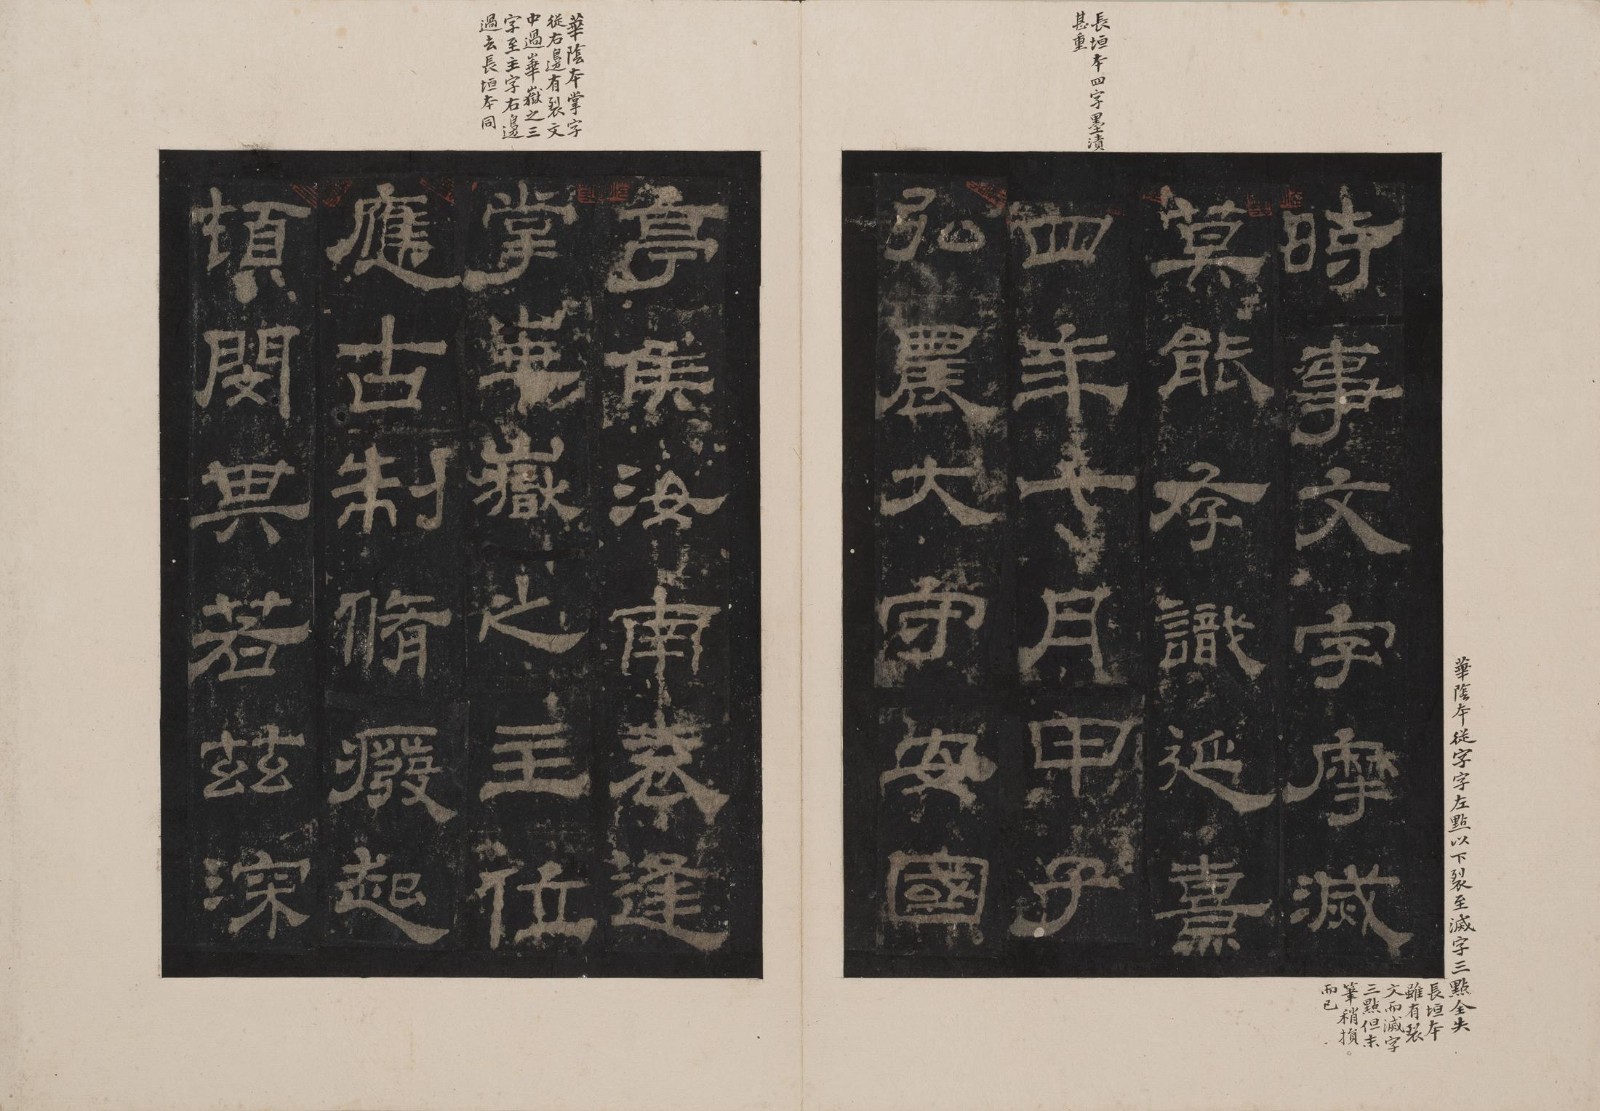 長垣本四字墨漬
甚重
時事文字摩滅
莫能存識延熹
四年七月甲子
弘農大守安國
華陰本從字字左點以下裂至滅字三點全失
長垣本
雖有裂
文而滅字
三點但末
筆稍損
而已
華陰本掌字
從右邊有裂文
中過華嶽之三
字至主字右邊
過去長垣本同
亭矦汝南袁逢
掌華嶽之主位
應古制脩癈起
頓閔其若茲深